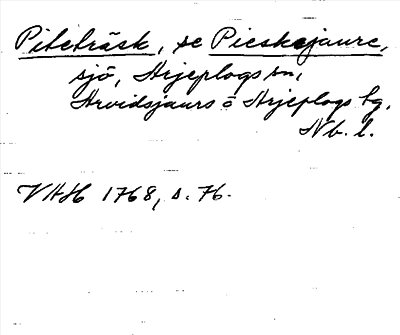 Piteträsk, se Pieskejaure,
sjö, Arjeplogs sn,
Arvidsjaurs o Arjeplogs tg.
Nb. l.
VAH 1768, s. 76.